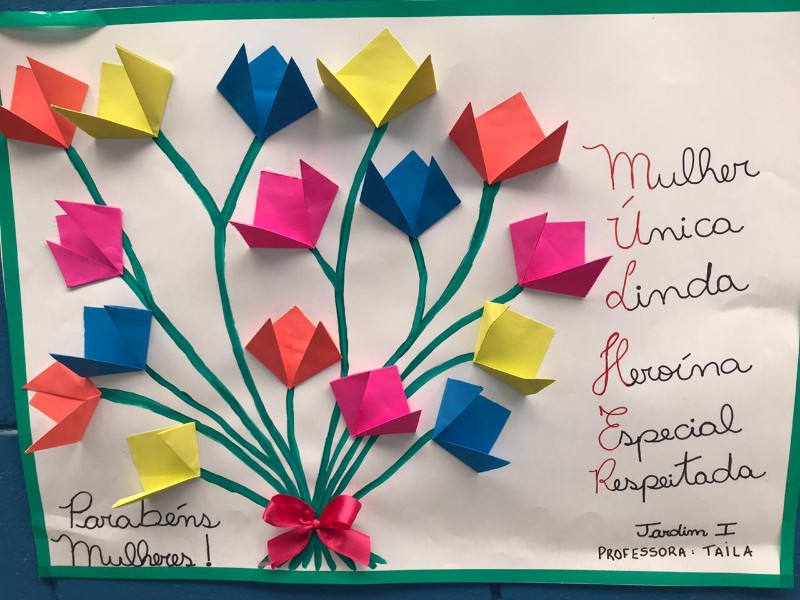 Mulher
Única
Linda
Heroína
Especial
Respeitada
Parabéns
Mulheres!
Jardim I
PROFESSORA: TAÍLA